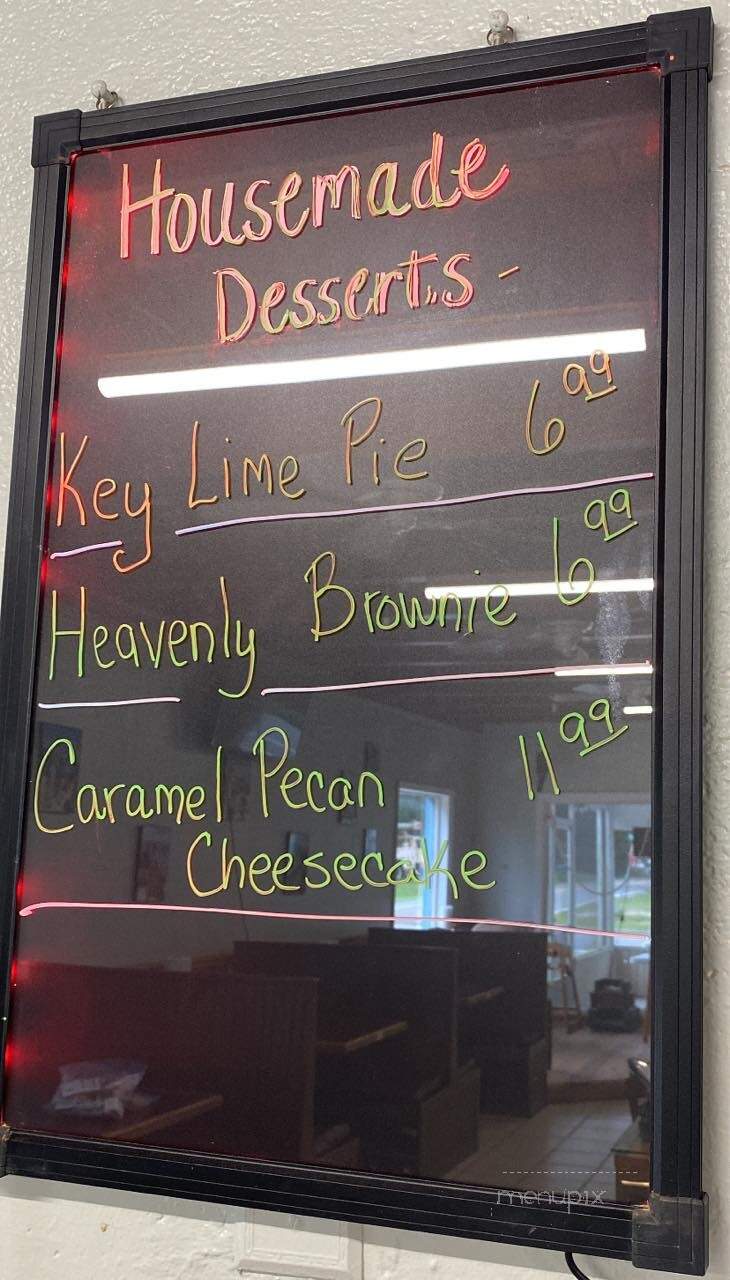 Housemade
Desserts -
Key Lime Pie 6 99
Heavenly Brownie 6 99
Caramel Pecan 11 99
Cheesecake
menupix